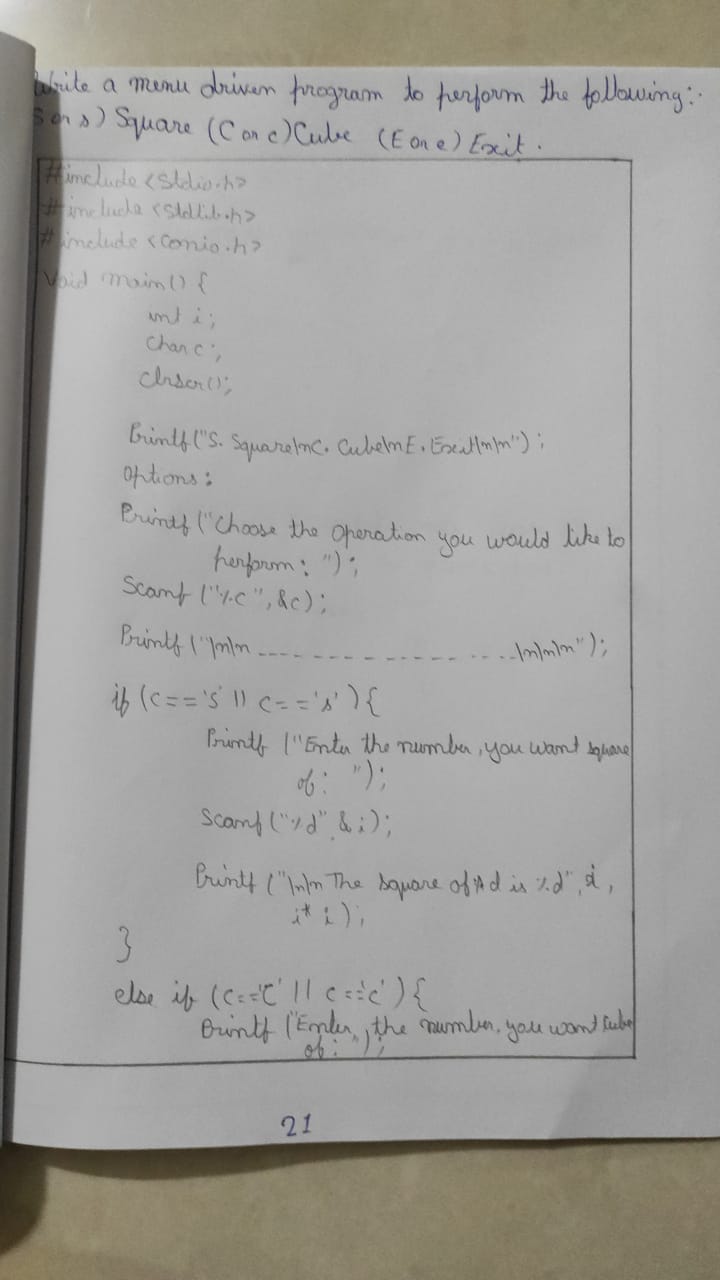 Write a menu driven program to perform the following:-
S or s) Square (C or c) Cube (E or e) Exit.
#include <stdio.h>
#include <stdlib.h>
#include <conio.h>
void main() {
int i;
char c;
clrscr();
Printf ("S. Square\nC. Cube\nE. Exit\n\n");
options:
Printf ("Choose the operation you would like to
perform: ");
Scanf ("%c", &c);
Printf ("\n\n ------------------ \n\n\n");
if (c=='S' || c=='s') {
Printf ("Enter the number, you want square
of: ");
Scanf ("%d", &i);
Printf ("\n\n The square of %d is %d", i,
i* i);
}
else if (c=='C' || c=='c') {
Printf ("Enter, the number, you want Cube
of: ");
21